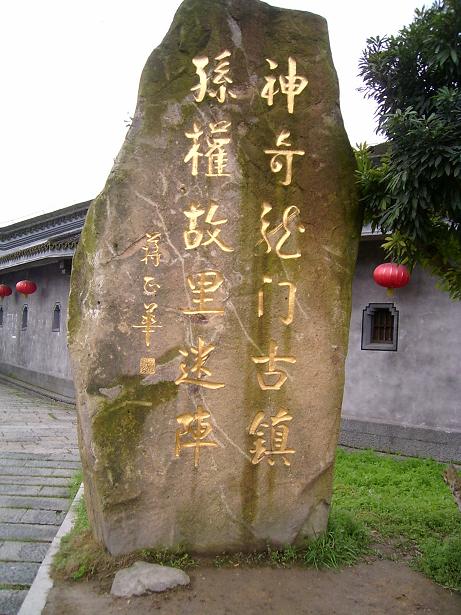 神奇龙门古镇
孫權故里迷陣
蒋正华